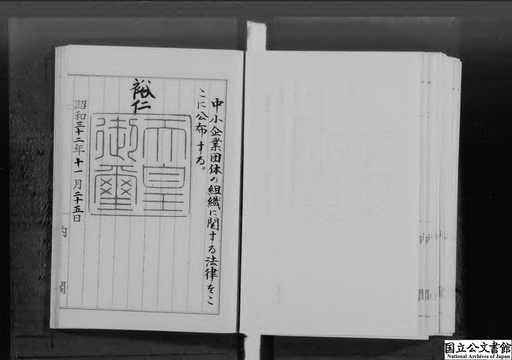 中小企業団体の組織に関する法律をこ
こに公布する。
裕仁
天皇
御璽
昭和三十二年十一月二十五日
内閣
国立公文書館
National Archives of Japan